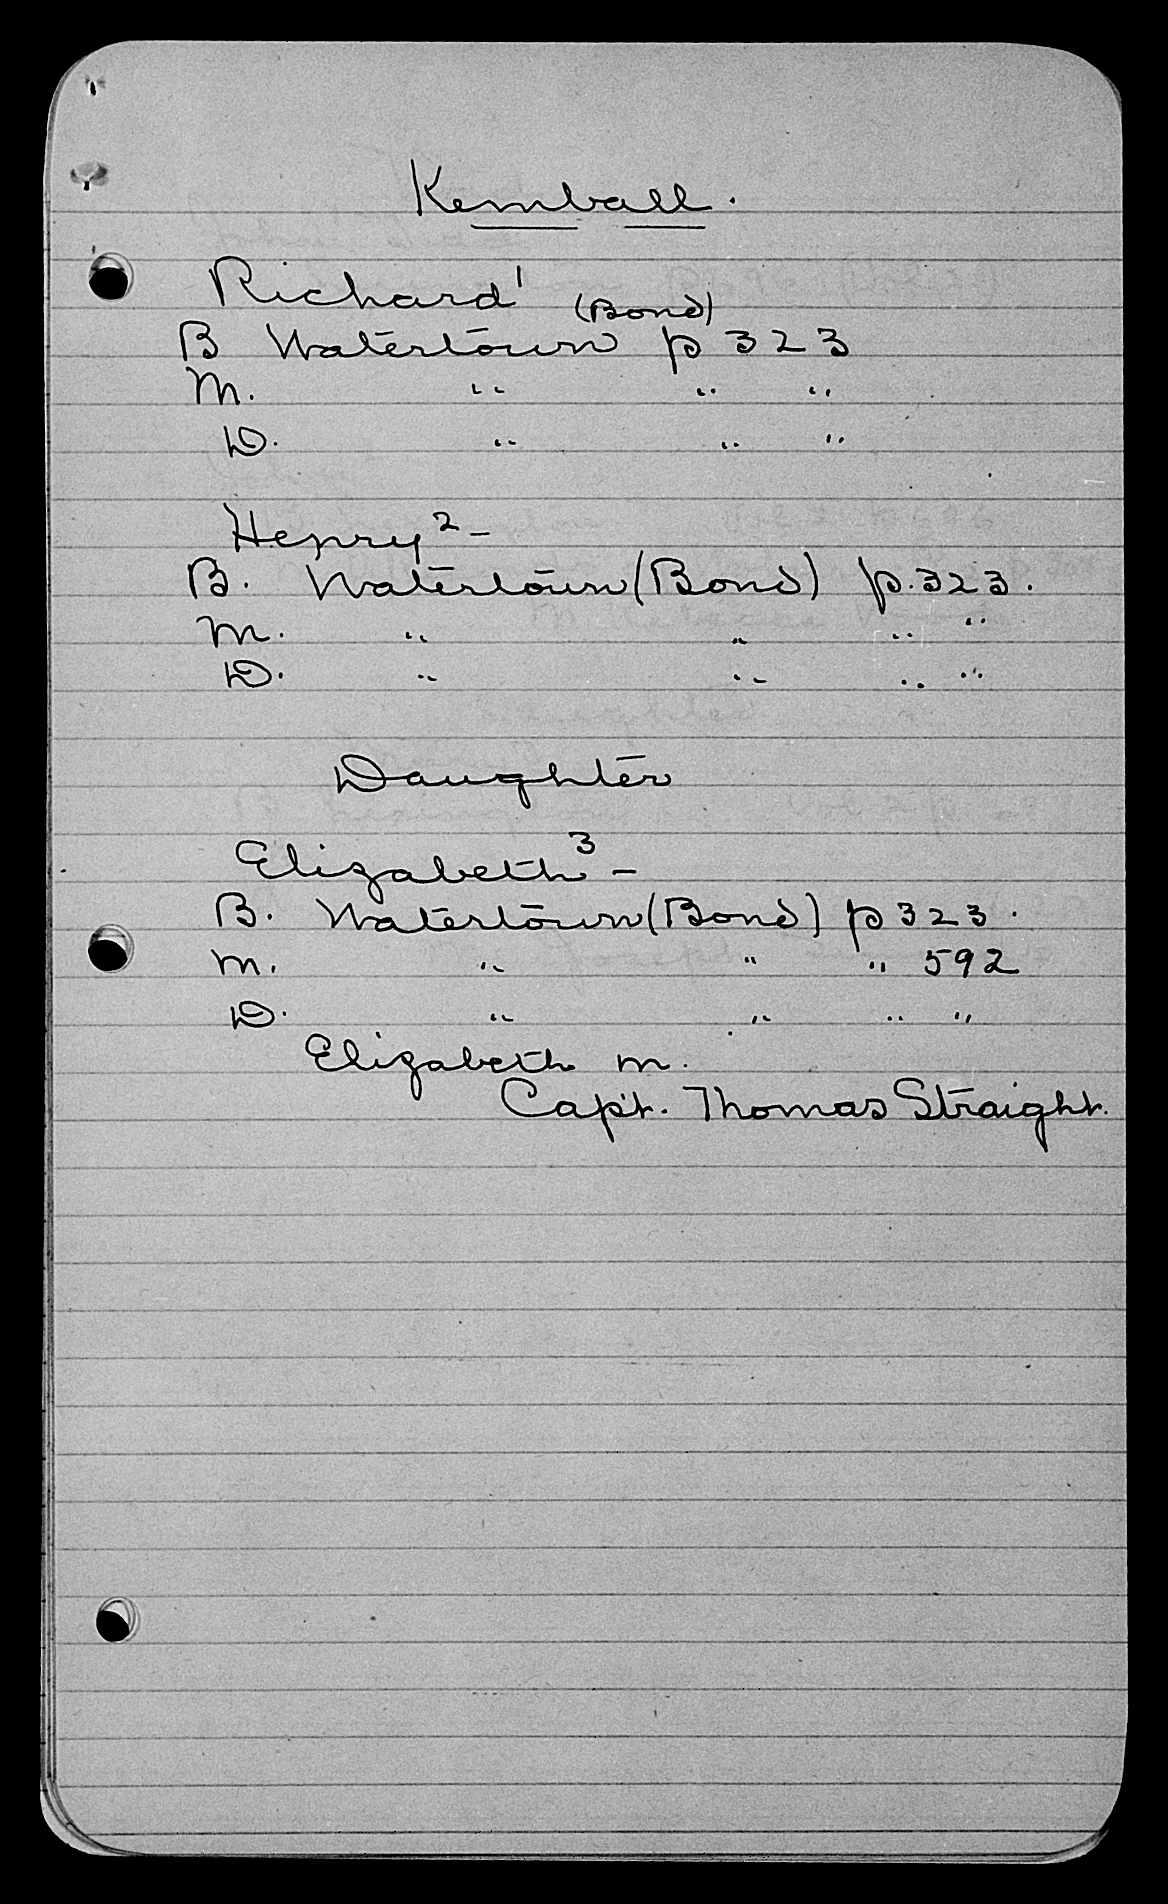 Kemball.
Richard¹
(Bond)
B Watertown p 323
M. " " "
D. " " "
Henry² -
B. Watertown (Bond) p. 323.
M. " " " "
D. " " " "
Daughter
Elizabeth³ -
B. Watertown (Bond) p 323.
M. " " " 592
D. " " " "
Elizabeth m.
Cap't. Thomas Straight.